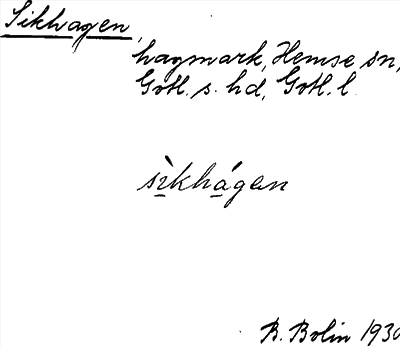 Sikhagen,
hagmark, Hemse sn,
Gotl. s. hd, Gotl. l
sìkhágen
B. Bolin 1930